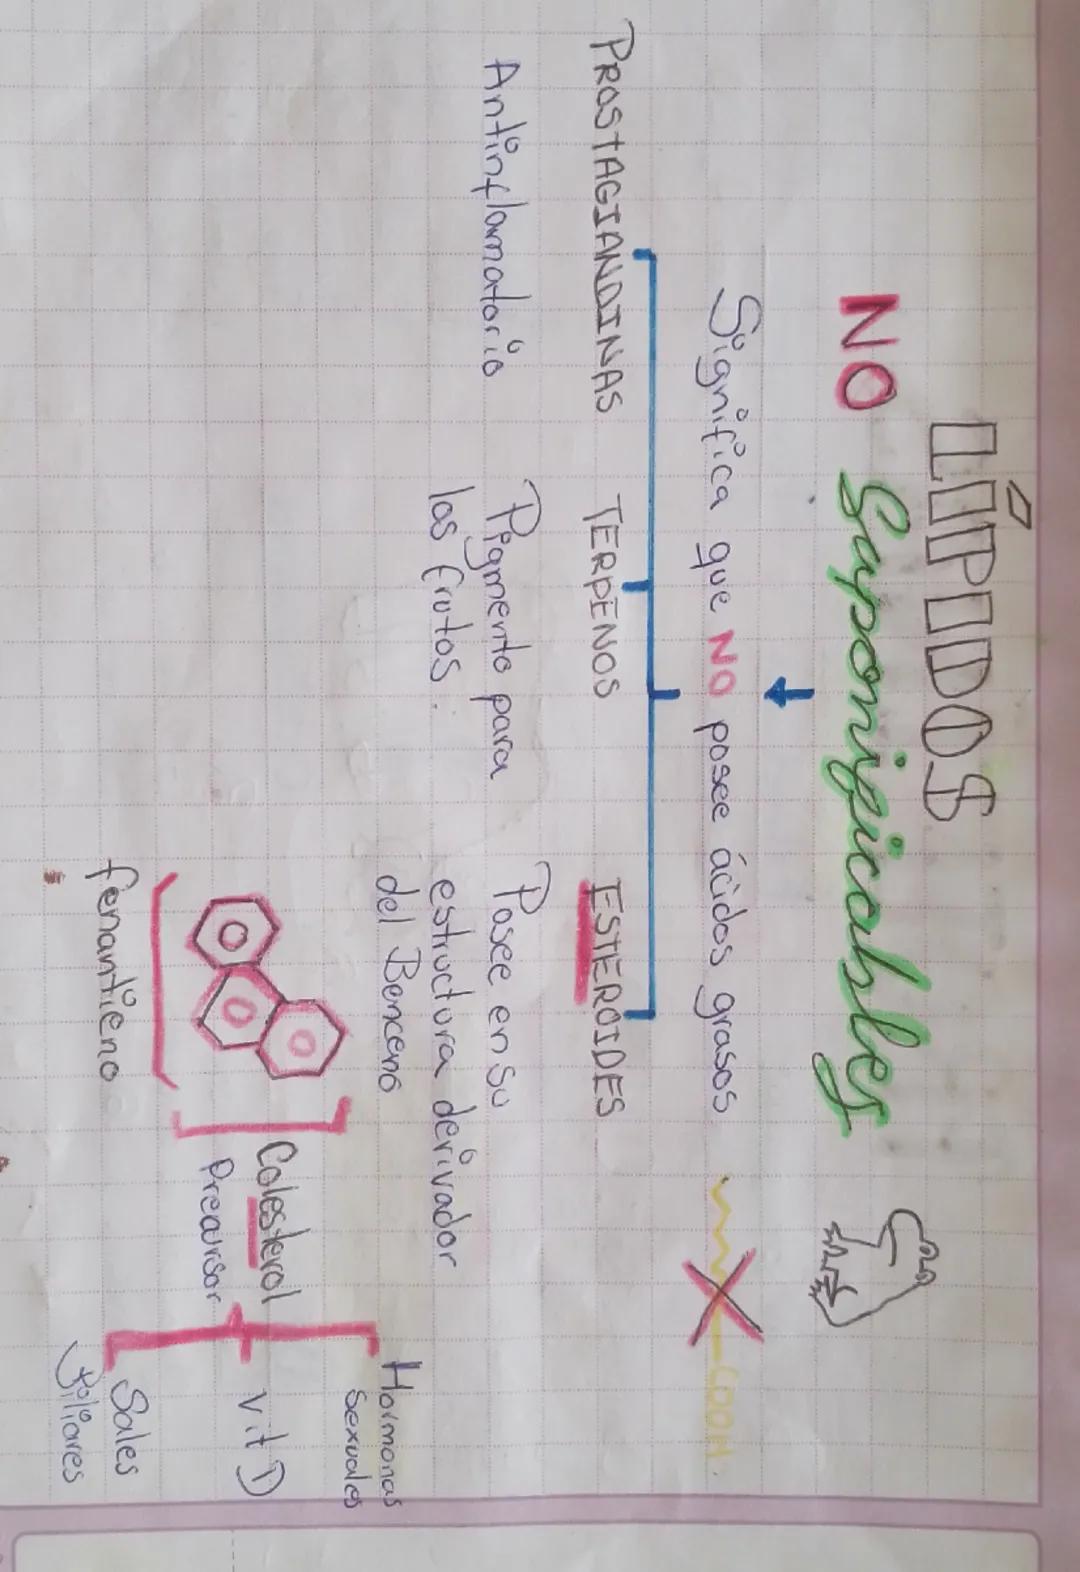 LÍPIDOS
NO Saponificables
Significa que NO posee ácidos grasos
COOH.
PROSTAGIANDINAS
TERPENOS
ESTEROIDES
Antinflamatorio
Pigmento para
las frutos.
Posee en su
estructura derivador
del Benceno
fenantieno
Colesterol
Precursor
Hormonas
Sexuales
Vit D
Sales
Biliares